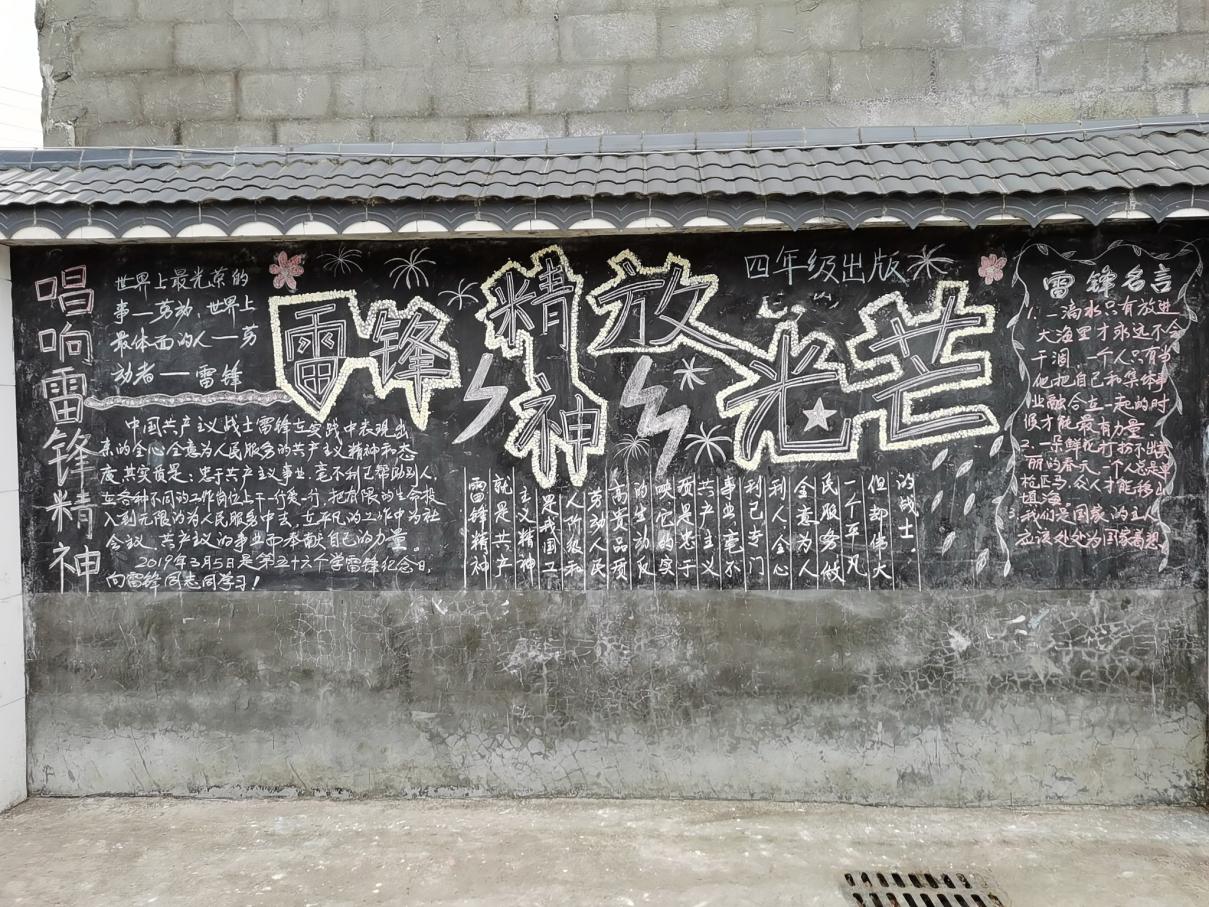 唱响雷锋精神
世界上最光荣的
事—劳动,世界上
最体面的人—劳
动者——雷锋
雷锋精神放光芒
四年级出版
中国共产主义战士雷锋在实践中表现出
来的全心全意为人民服务的共产主义精神和态
度,其实质是:忠于共产主义事业,毫不利己帮助别人,
在各种不同的工作岗位上干一行爱一行,把有限的生命投
入到无限的为人民服务中去,在平凡的工作中为社
会主义、共产主义的事业而奉献自己的力量。
2019年3月5日是第五十六个学雷锋纪念日,
向雷锋同志同学习!
雷锋精神
就是共产
主义精神
是我国工
人阶级和
劳动人民
高贵品质
的生动反
映,它的实
质是忠于
共产主义
事业,毫不
利己,专门
利人,全心
全意为人
民服务,做
一个平凡
但却伟大
的战士.
雷锋名言
1.一滴水只有放进
大海里才永远不会
干涸,一个人只有当
他把自己和集体事
业融合在一起的时
候才能最有力量
2.一朵鲜花打扮不出美
丽的春天,一个人总是单
枪匹马,众人才能移山
填海。
3.我们是国家的主人
应该处处为国家着想